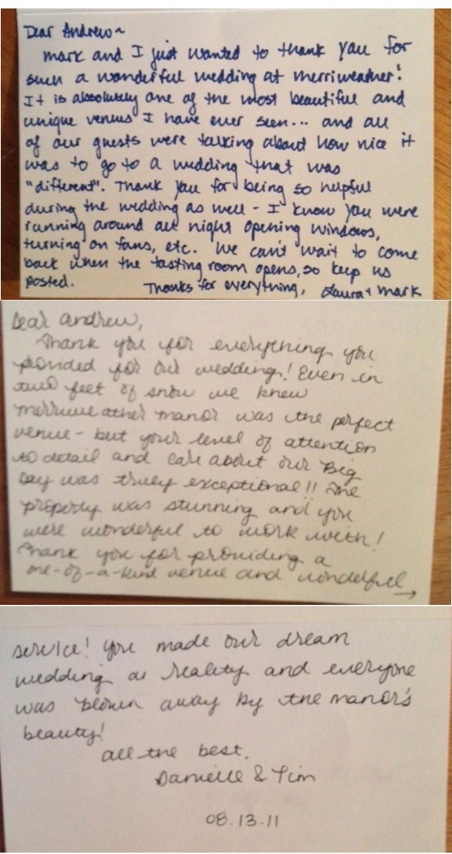 Dear Andrew~
Mark and I just wanted to thank you for
such a wonderful wedding at merriweather!
It is absolutely one of the most beautiful and
unique venues I have ever seen... and all
of our guests were talking about how nice it
was to go to a wedding that was
"different". Thank you for being so helpful
during the wedding as well - I know you were
running around all night opening windows,
turning on fans, etc. We can't wait to come
back when the tasting room opens, so keep us
posted. Thanks for everything, Laura + Mark
Dear Andrew,
Thank you for everything you
provided for our wedding! Even in
two feet of snow we knew
merriweather manor was the perfect
venue - but your level of attention
to detail and care about our Big
Day was truely exceptional!! The
property was stunning and you
were wonderful to work with!
Thank you for providing a
one-of-a-kind venue and wonderful →
service! You made our dream
wedding a reality and everyone
was blown away by the manor's
beauty!
all the best,
Danielle & Tim
08.13.11